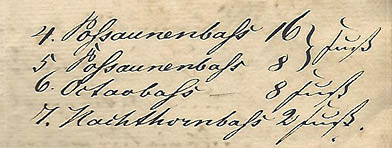 4. Possaunenbass 16 } Fuß
5 Possaunenbass 8
6. Octavbass 8 Fuß
7. Nachthornbass 2 Fuß.